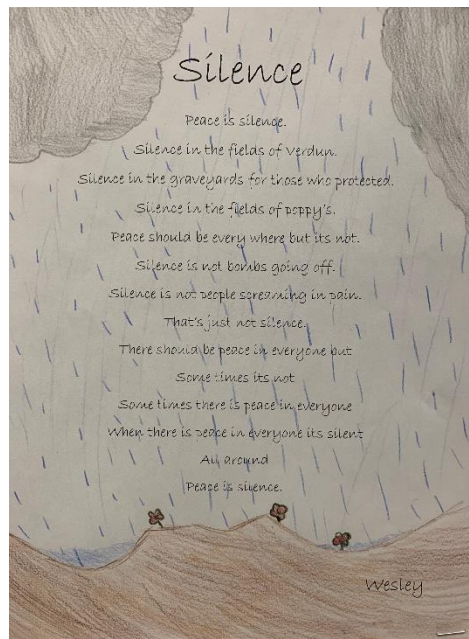 Silence
Peace is silence.
Silence in the fields of Verdun.
Silence in the graveyards for those who protected.
Silence in the fields of poppy's.
Peace should be every where but its not.
Silence is not bombs going off.
Silence is not people screaming in pain.
That's just not silence.
There should be peace in everyone but
Some times its not
Some times there is peace in everyone
When there is peace in everyone its silent
All around
Peace is silence.
Wesley